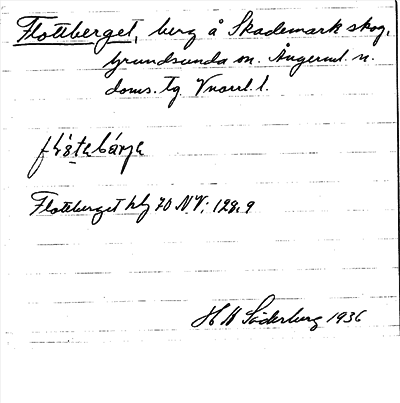 Flottberget, berg å Skademark skog,
Grundsunda sn. Ångerml. n.
doms. tg. Vnorrl. l.
Flottberget kbl 70 NV: 128,9
H W Söderberg 1936